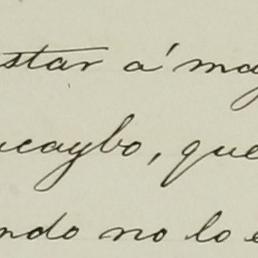 star á may
acaybo, que
ndo no lo e